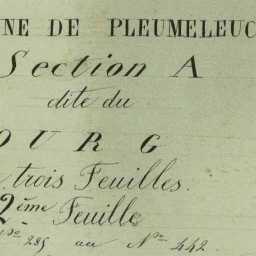 NE DE PLEUMELEUC
Section A
dite du
OURG
trois Feuilles.
2ème Feuille
Nos 285 au No 442